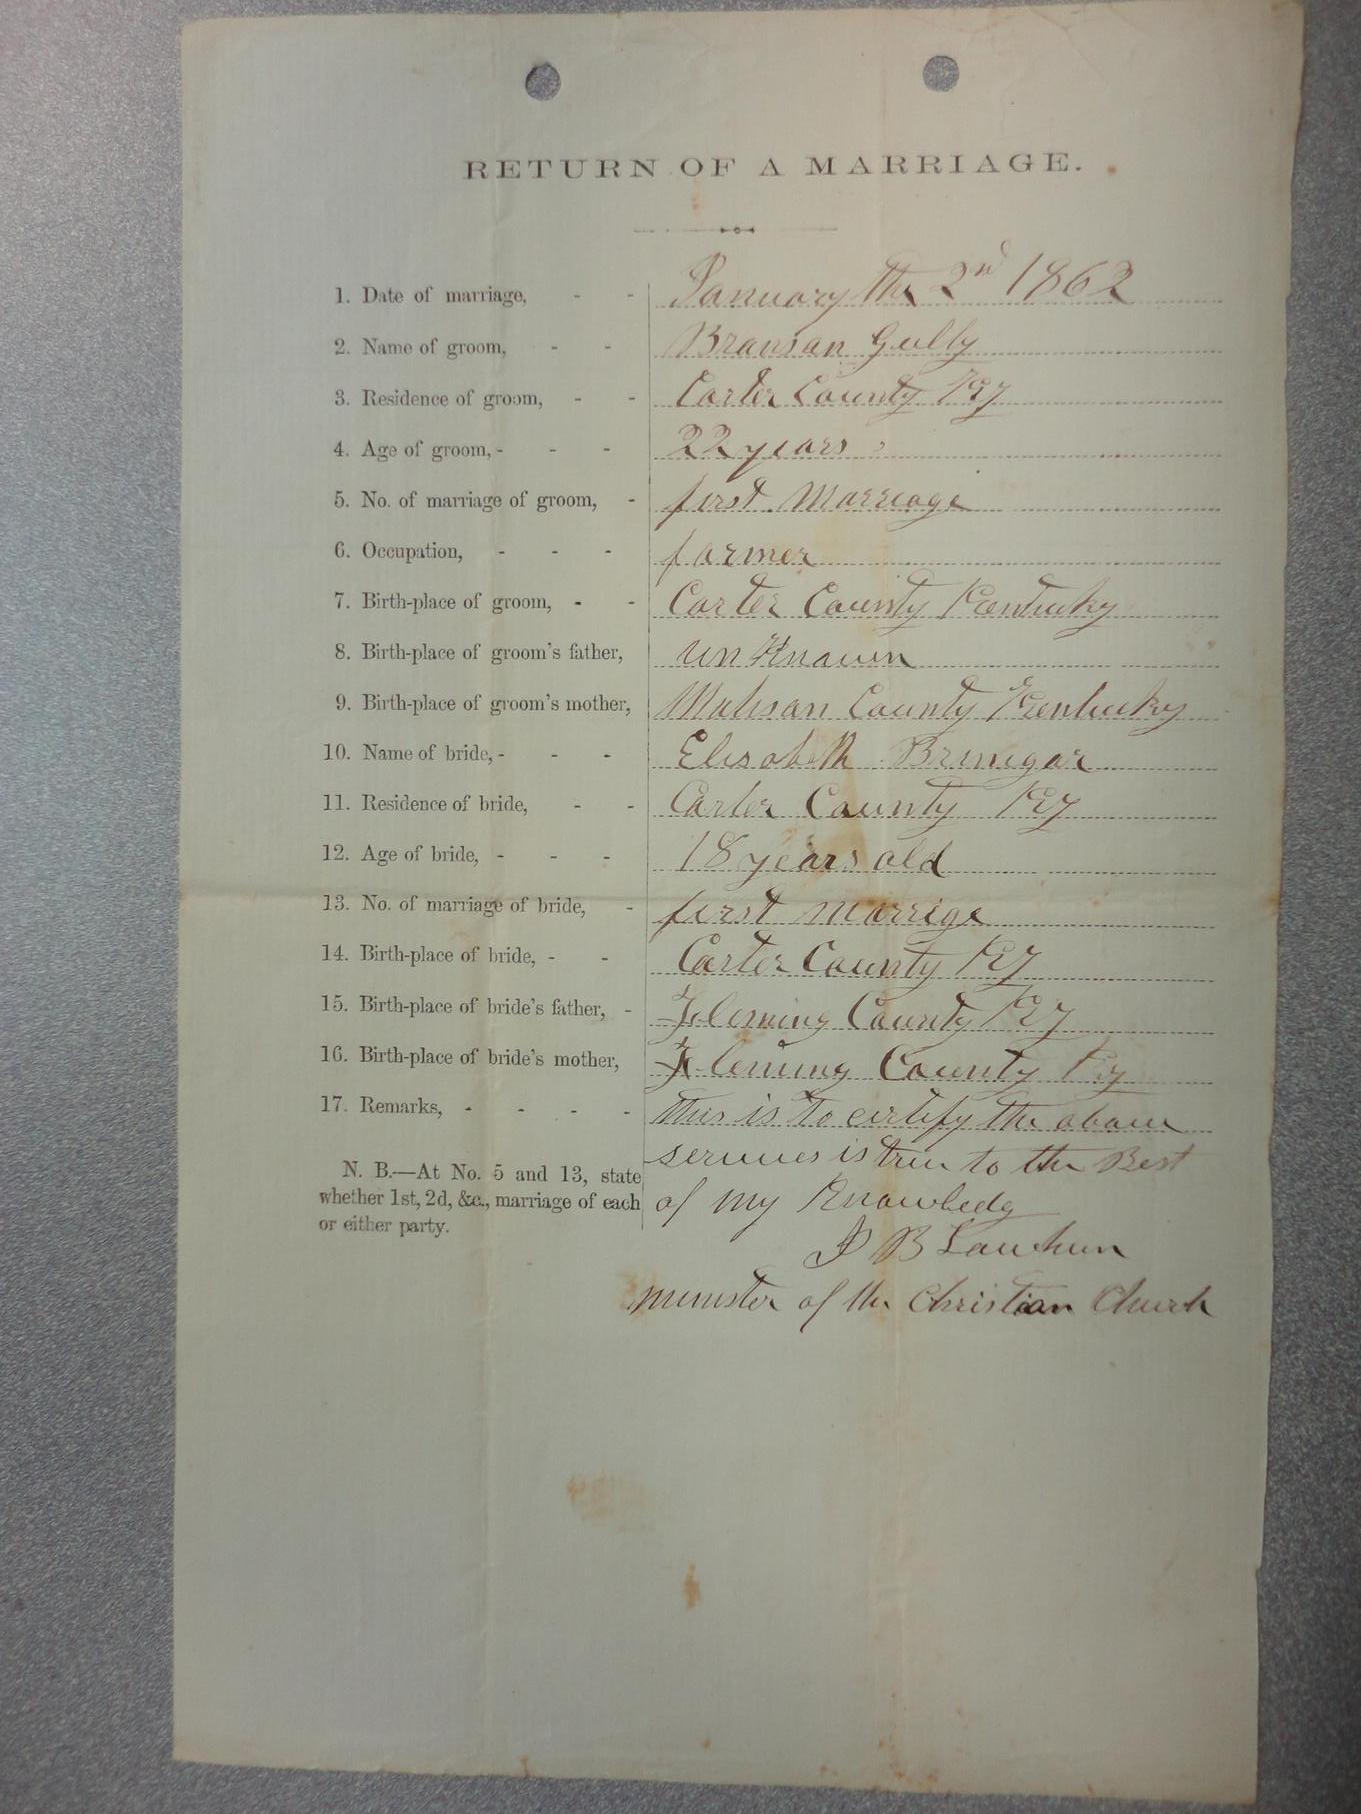 RETURN OF A MARRIAGE.
1. Date of marriage, - - January the 2nd 1862
2. Name of groom, - - Bransan Gully
3. Residence of groom, - - Carter County Ky
4. Age of groom, - - - 22 years
5. No. of marriage of groom, - first Marriage
6. Occupation, - - - farmer
7. Birth-place of groom, - - Carter County Kentucky
8. Birth-place of groom's father, un Known
9. Birth-place of groom's mother, County Kentucky
10. Name of bride, - - - Elisabeth Brinegar
11. Residence of bride, - - Carter County Ky
12. Age of bride, - - - 18 years old
13. No. of marriage of bride, - first marrige
14. Birth-place of bride, - - Carter County Ky
15. Birth-place of bride's father, - Fleming County Ky
16. Birth-place of bride's mother, Fleming County Ky
17. Remarks, - - - - this is to certify the above
services is true to the Best
N. B.—At No. 5 and 13, state
whether 1st, 2d, &c., marriage of each of my Knowledg
or either party.
J B Lawhun
minister of the Christian Church